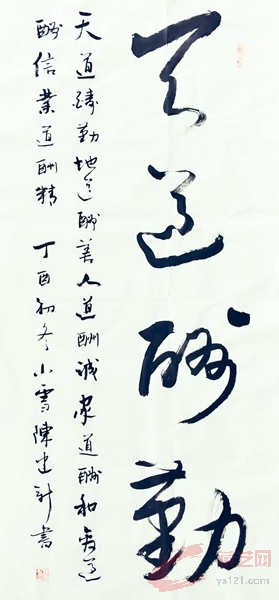 天道酬勤
天道酬勤地道酬善人道酬诚家道酬和商道
酬信業道酬精 丁酉初冬小雪陳建新書
ys121.com